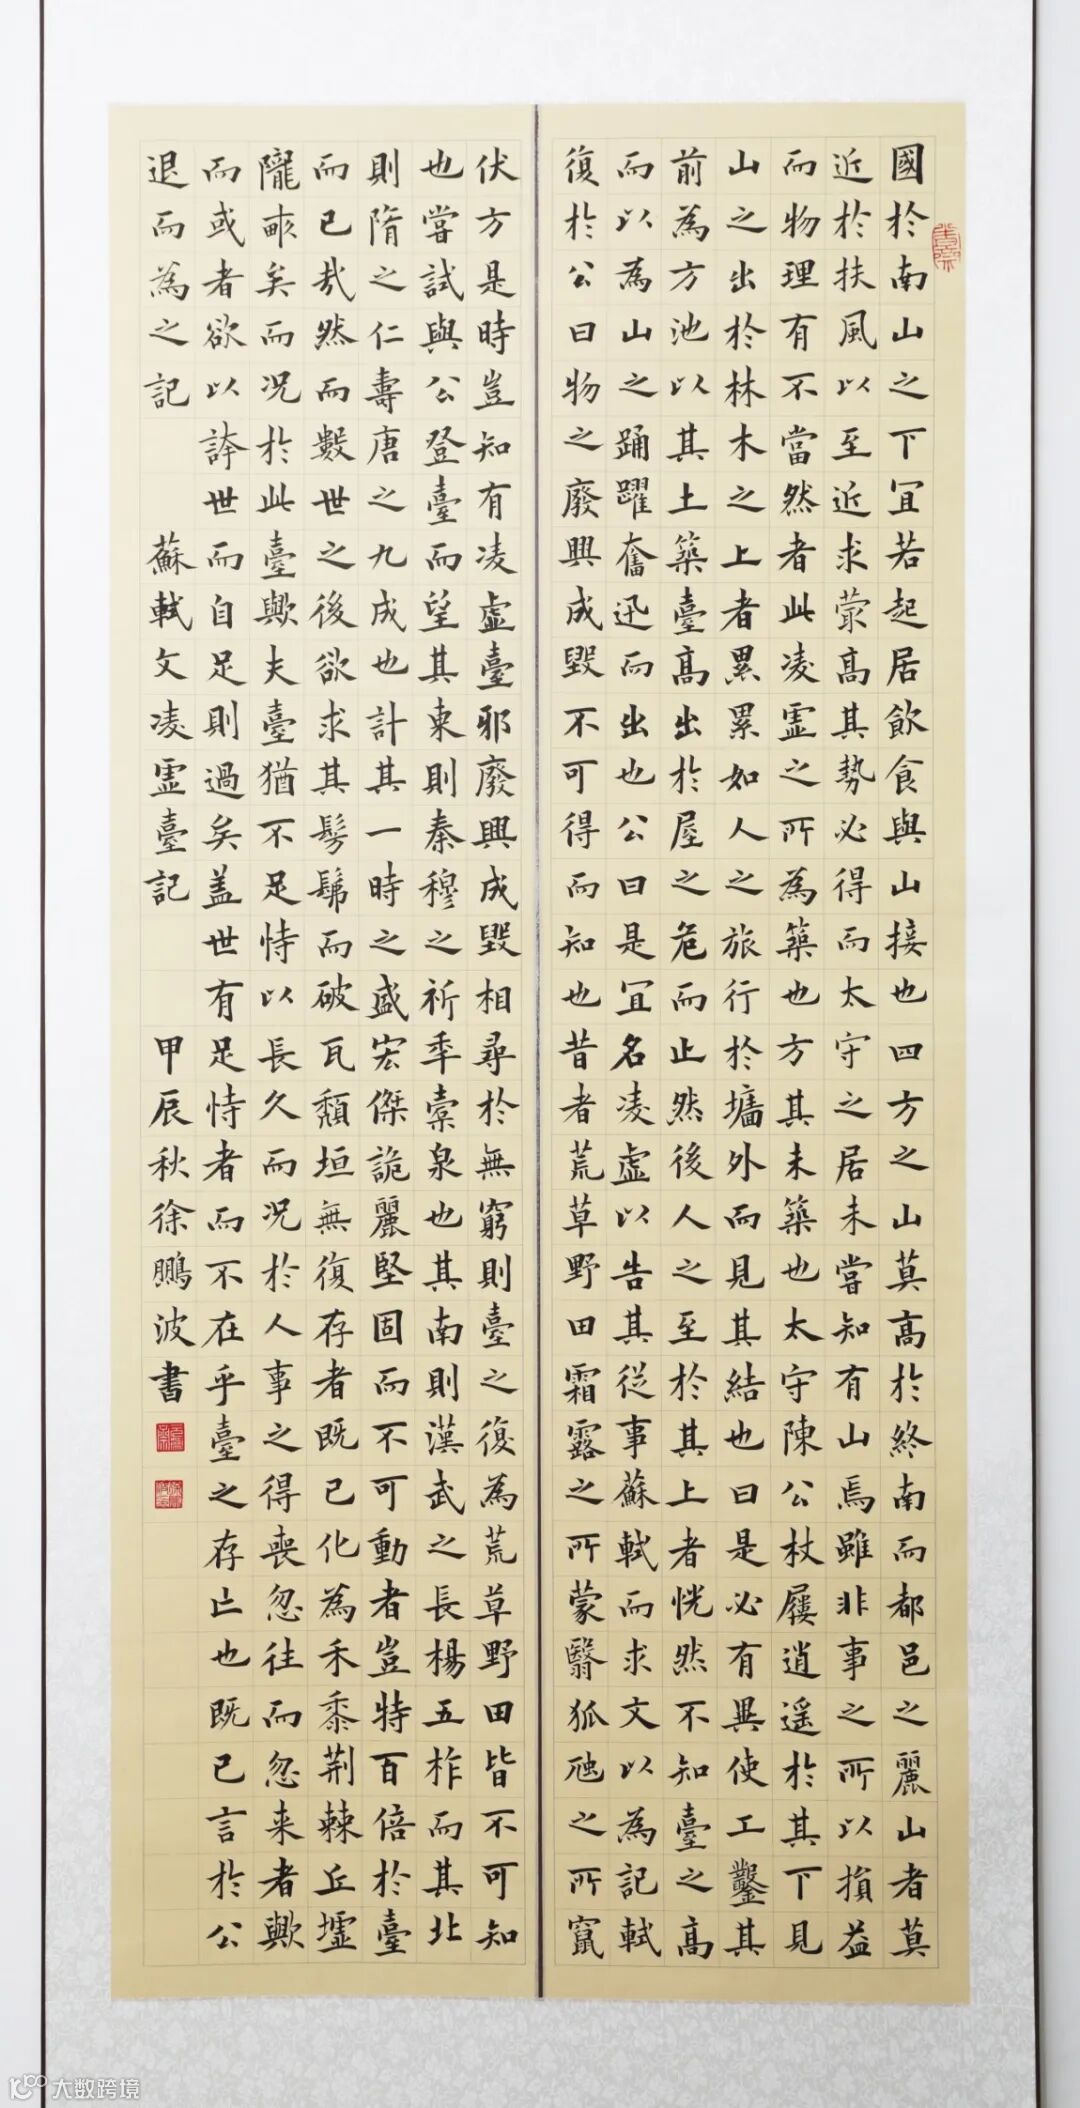 國於南山之下宜若起居飲食與山接也四方之山莫高於終南而都邑之麗山者莫
近於扶風以至近求最高其勢必得而太守之居未嘗知有山焉雖非事之所以損益
而物理有不當然者此凌虛之所為築也方其未築也太守陳公杖屨逍遙於其下見
山之出於林木之上者累累如人之旅行於墻外而見其結也曰是必有異使工鑿其
前為方池以其土築臺高出於屋之危而止然後人之至於其上者恍然不知臺之高
而以為山之踊躍奮迅而出也公曰是宜名凌虛以告其從事蘇軾而求文以為記軾
復於公曰物之廢興成毀不可得而知也昔者荒草野田霜露之所蒙翳狐虺之所竄
伏方是時豈知有凌虛臺邪廢興成毀相尋於無窮則臺之復為荒草野田皆不可知
也嘗試與公登臺而望其東則秦穆之祈年橐泉也其南則漢武之長楊五柞而其北
則隋之仁壽唐之九成也計其一時之盛宏傑詭麗堅固而不可動者豈特百倍於臺
而已哉然而數世之後欲求其髣髴而破瓦頹垣無復存者既已化為禾黍荊棘丘墟
隴畝矣而况於此臺歟夫臺猶不足恃以長久而况於人事之得喪忽往而忽来者歟
而或者欲以誇世而自足則過矣盖世有足恃者而不在乎臺之存亡也既已言於公
退而為之記 蘇軾文凌虛臺記 甲辰秋徐鵬波書
大数跨境